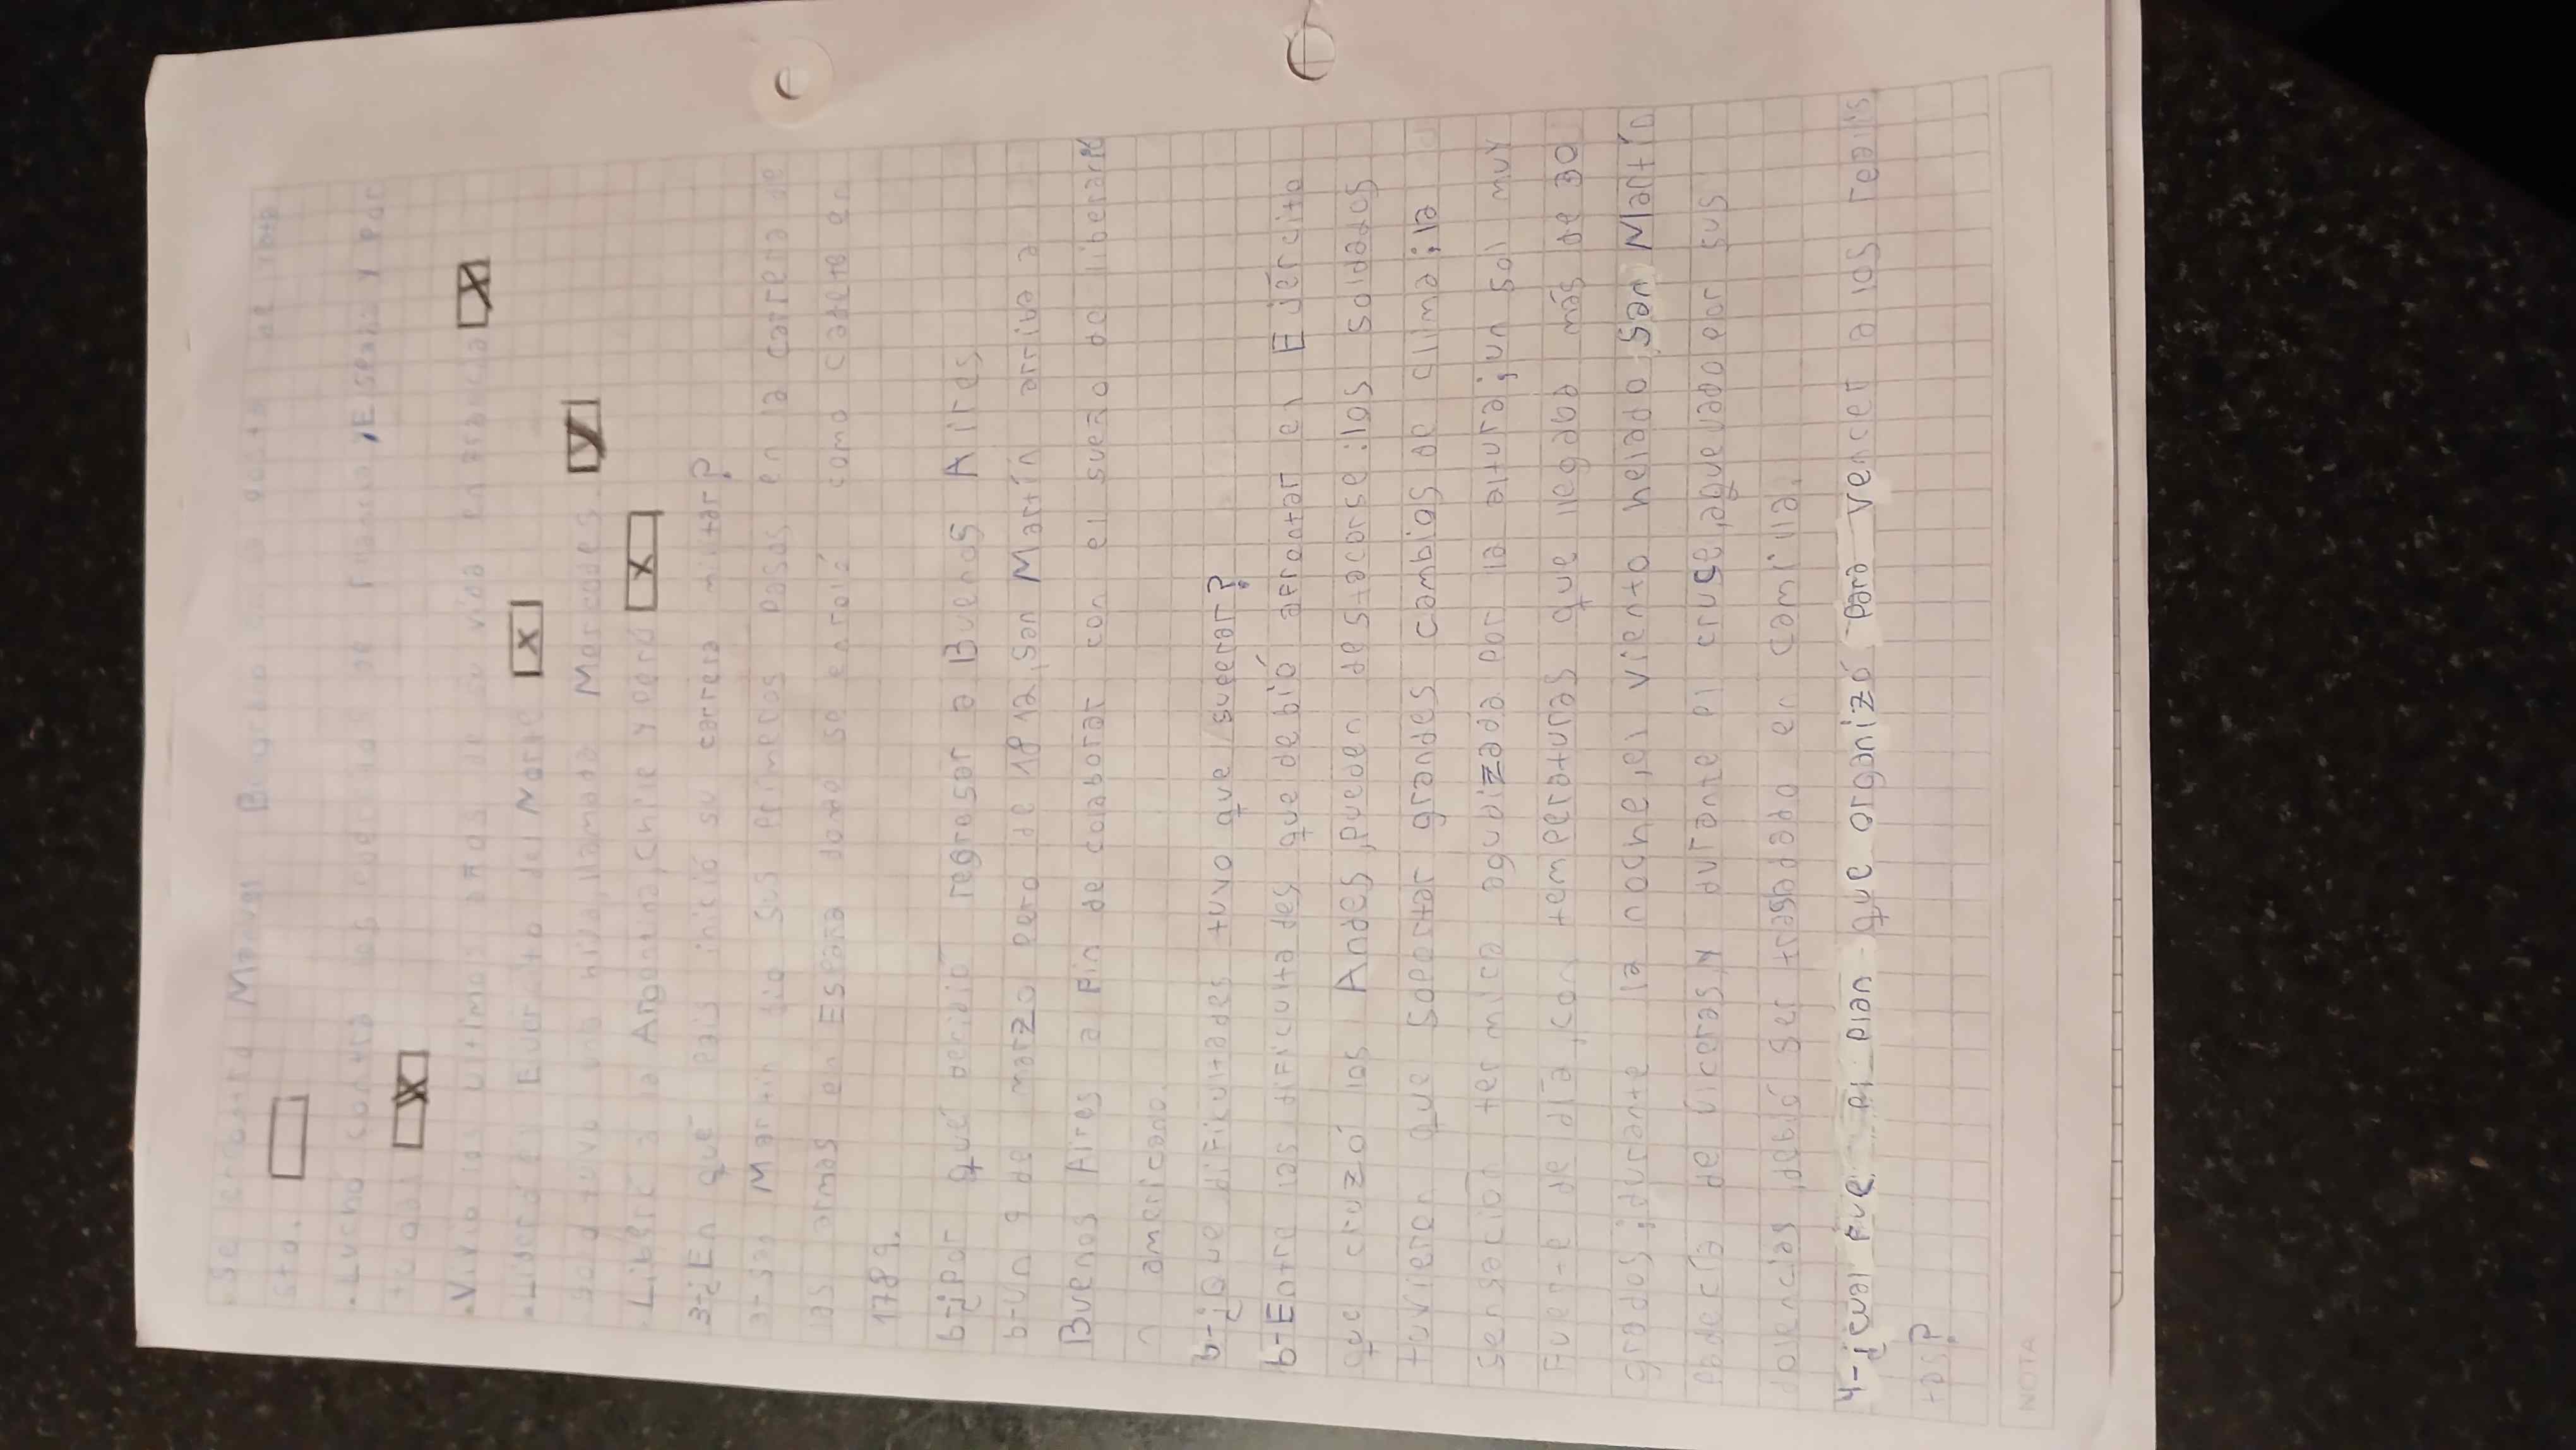 . Se enfrentó Manuel Belgrano en la gesta de
sta.
. Luchó contra los ejércitos de Francia, España y Por
tugal
. Vivió los últimos años de su vida en Francia
. Lideró el Ejército del Norte
Solo tuvo una hija, llamada Mercedes.
. Liberó a la Argentina, Chile y Perú
3-¿En qué país inició su carrera militar?
a-San Martín dio sus primeros pasos en la carrera de
las armas en España donde se enroló como cadete en
1789.
b-¿por qué decidió regresar a Buenos Aires
b-un 9 de marzo pero de 1812, San Martín arriva a
Buenos Aires a fin de colaborar con el sueño de liberar
americano.
b-¿Que dificultades tuvo que superar?
b-Entre las dificultades que debió afrontar el Ejército
que cruzó los Andes, pueden destacarse: los soldados
tuvieron que soportar grandes cambios de clima; la
sensación termica agudizada por la altura; un sol muy
fuerte de día, con temperaturas que llegaba más de 30
grados; durante la noche, el viento helado, San Martín
padecía de úlceras, y durante el cruse, aquejado por sus
dolencias, debió ser trasladado en camilla.
4-¿cual fue el plan que organizó para vencer a los realis
tas?
NOTA